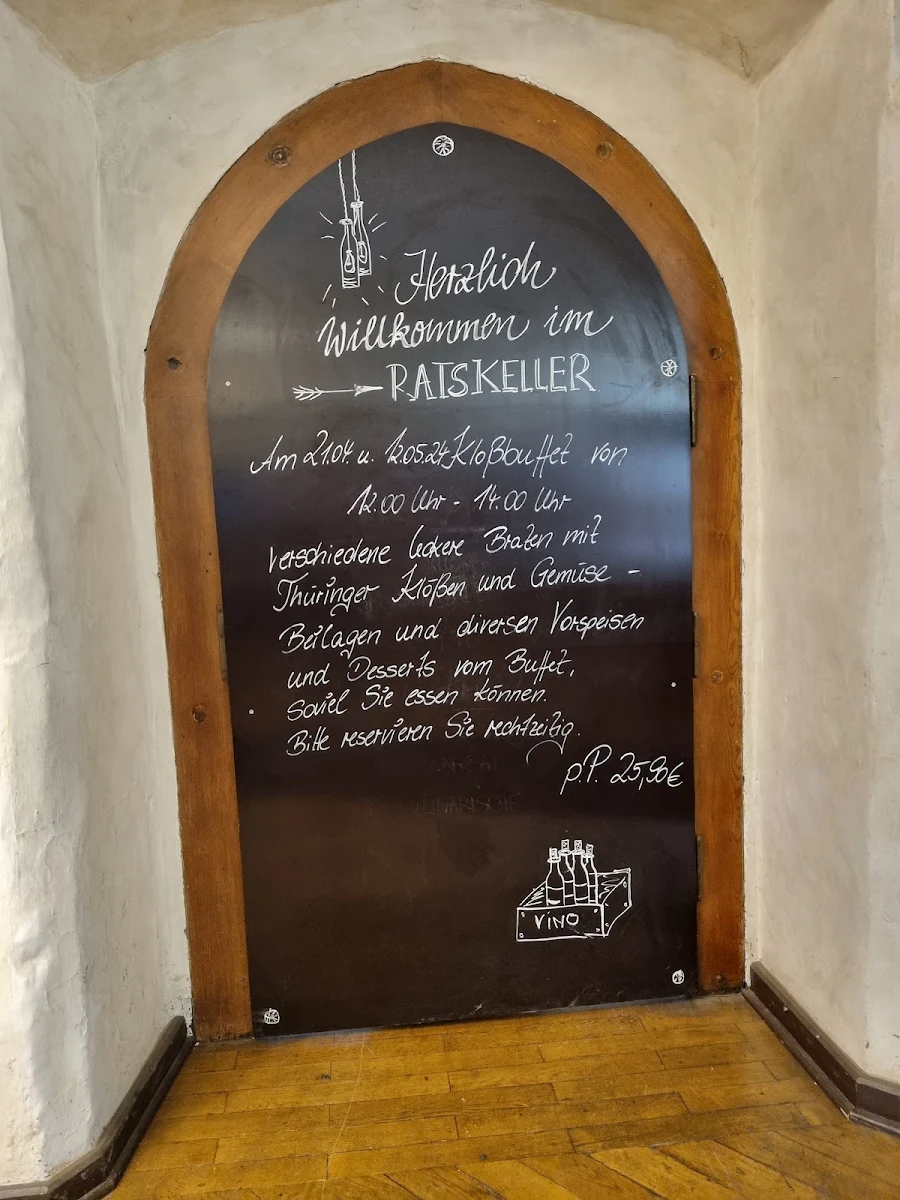 Herzlich
Willkommen im
RATSKELLER
Am 21.04. u. 12.05.24 Kloßbuffet von
12.00 Uhr - 14.00 Uhr
verschiedene leckere Braten mit
Thüringer Klößen und Gemüse -
Beilagen und diversen Vorspeisen
und Desserts vom Buffet,
soviel Sie essen können.
Bitte reservieren Sie rechtzeitig.
p.P. 25,90€
VINO